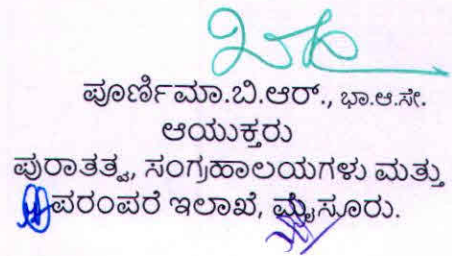 ಪೂರ್ಣಿಮಾ.ಬಿ.ಆರ್., ಭಾ.ಆ.ಸೇ.
ಆಯುಕ್ತರು
ಪುರಾತತ್ವ, ಸಂಗ್ರಹಾಲಯಗಳು ಮತ್ತು
ಪರಂಪರೆ ಇಲಾಖೆ, ಮೈಸೂರು.